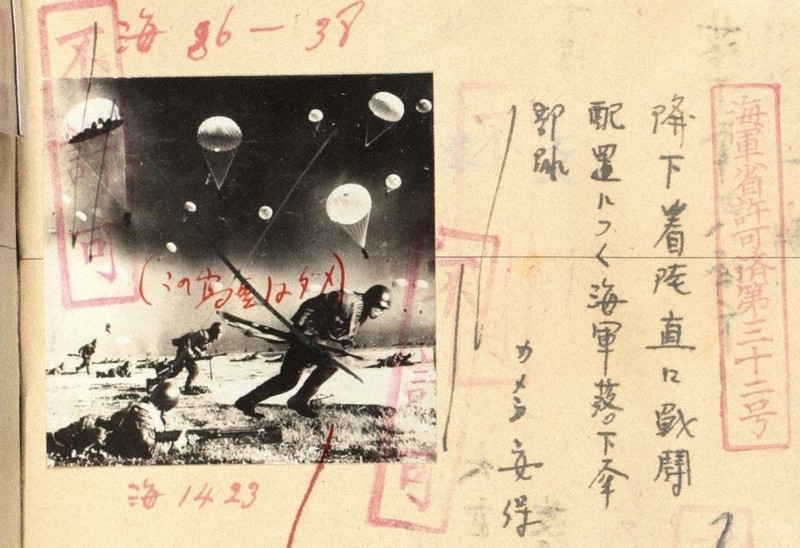 海 86-38
不許可
海軍省許可済第三十二号
降下着陸直に戦闘
配置につく海軍落下傘
部隊
カメラ 安保
(この写真はダメ)
不許可
海 1423